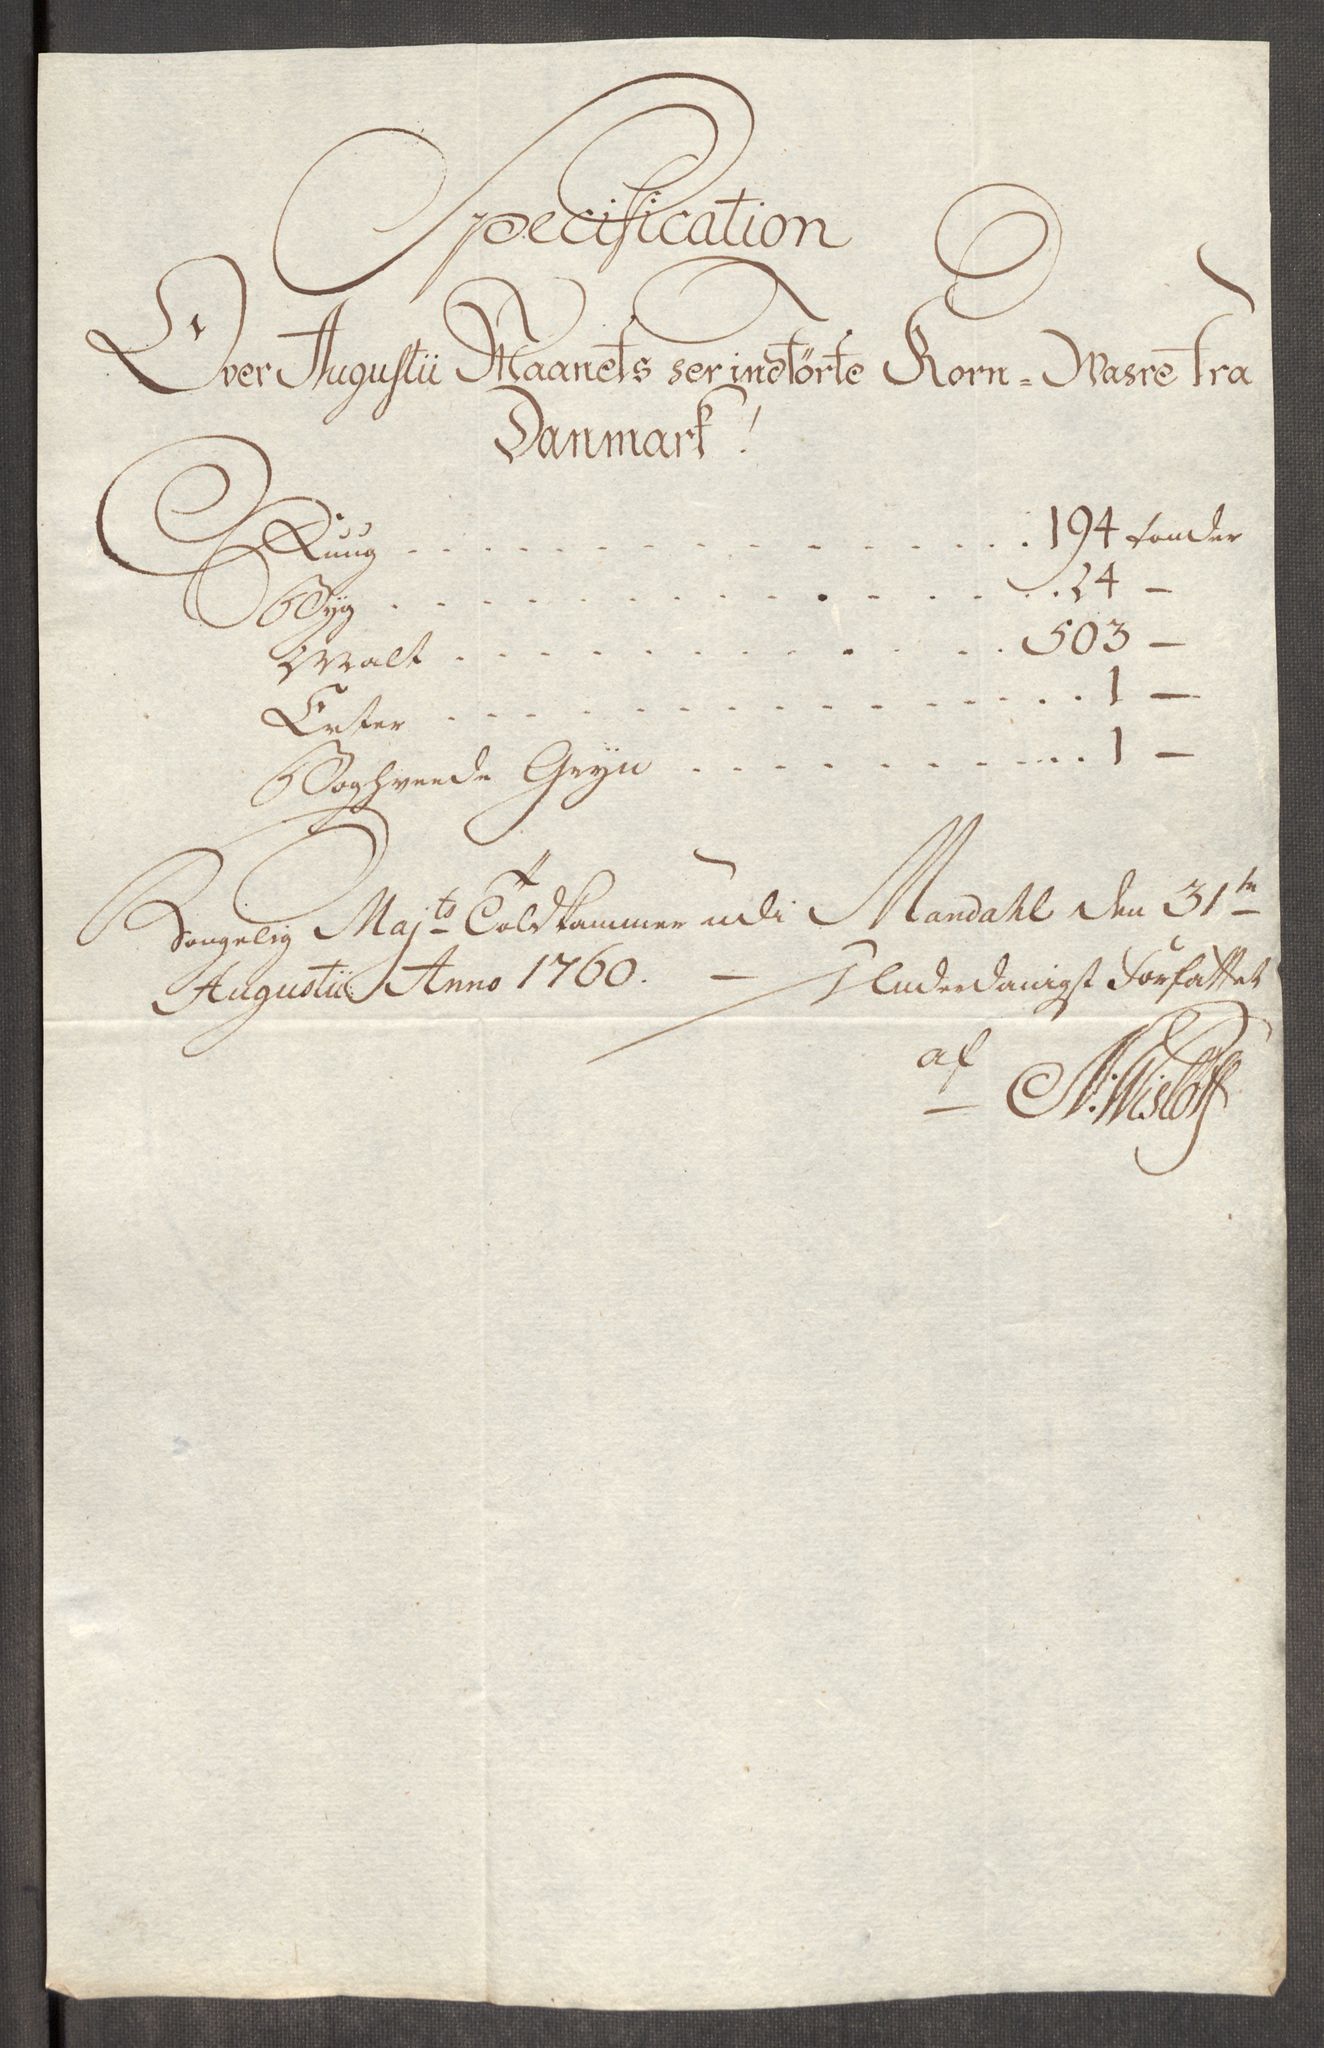 Specification
Over Augustii Maanets her indförte Korn-Wahre fra
Danmark!
Ruug . . . . . . . . . . . . . . . . 194 tønder
Byg . . . . . . . . . . . . . . . . 24 —
Malt . . . . . . . . . . . . . . 503 —
Erter . . . . . . . . . . . . . . . . 1 —
Boghveede Gryn . . . . . . . . . . 1 —
Kongelig Majts Toldkammer udi Mandahl den 31te
Augustii Anno 1760. — Underdanigst Forfattet
af N: Wisløff